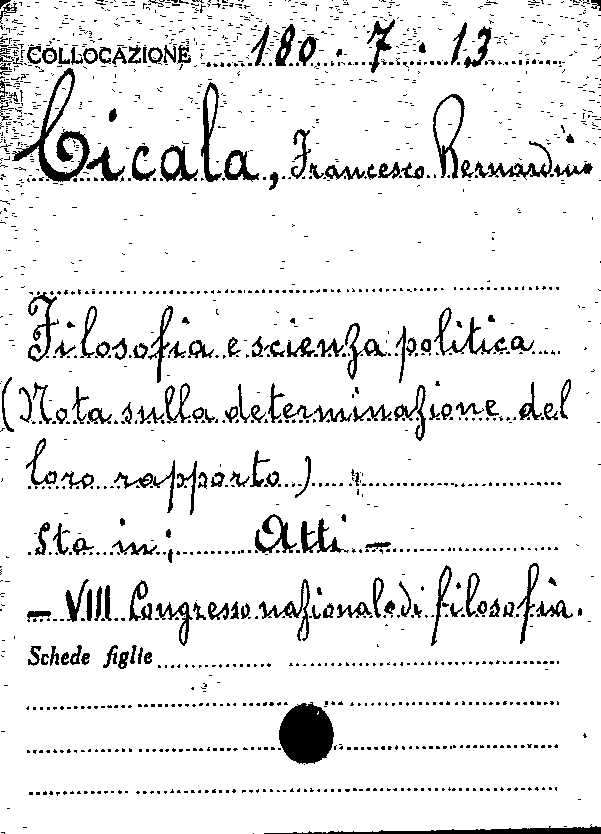 COLLOCAZIONE 180.7.13
Cicala, Francesco Bernardin.
Filosofia e scienza politica
(Nota sulla determinazione del
loro rapporto)
Sta in; Atti –
– VIII Congresso nazionale di filosofia.
Schede figlie